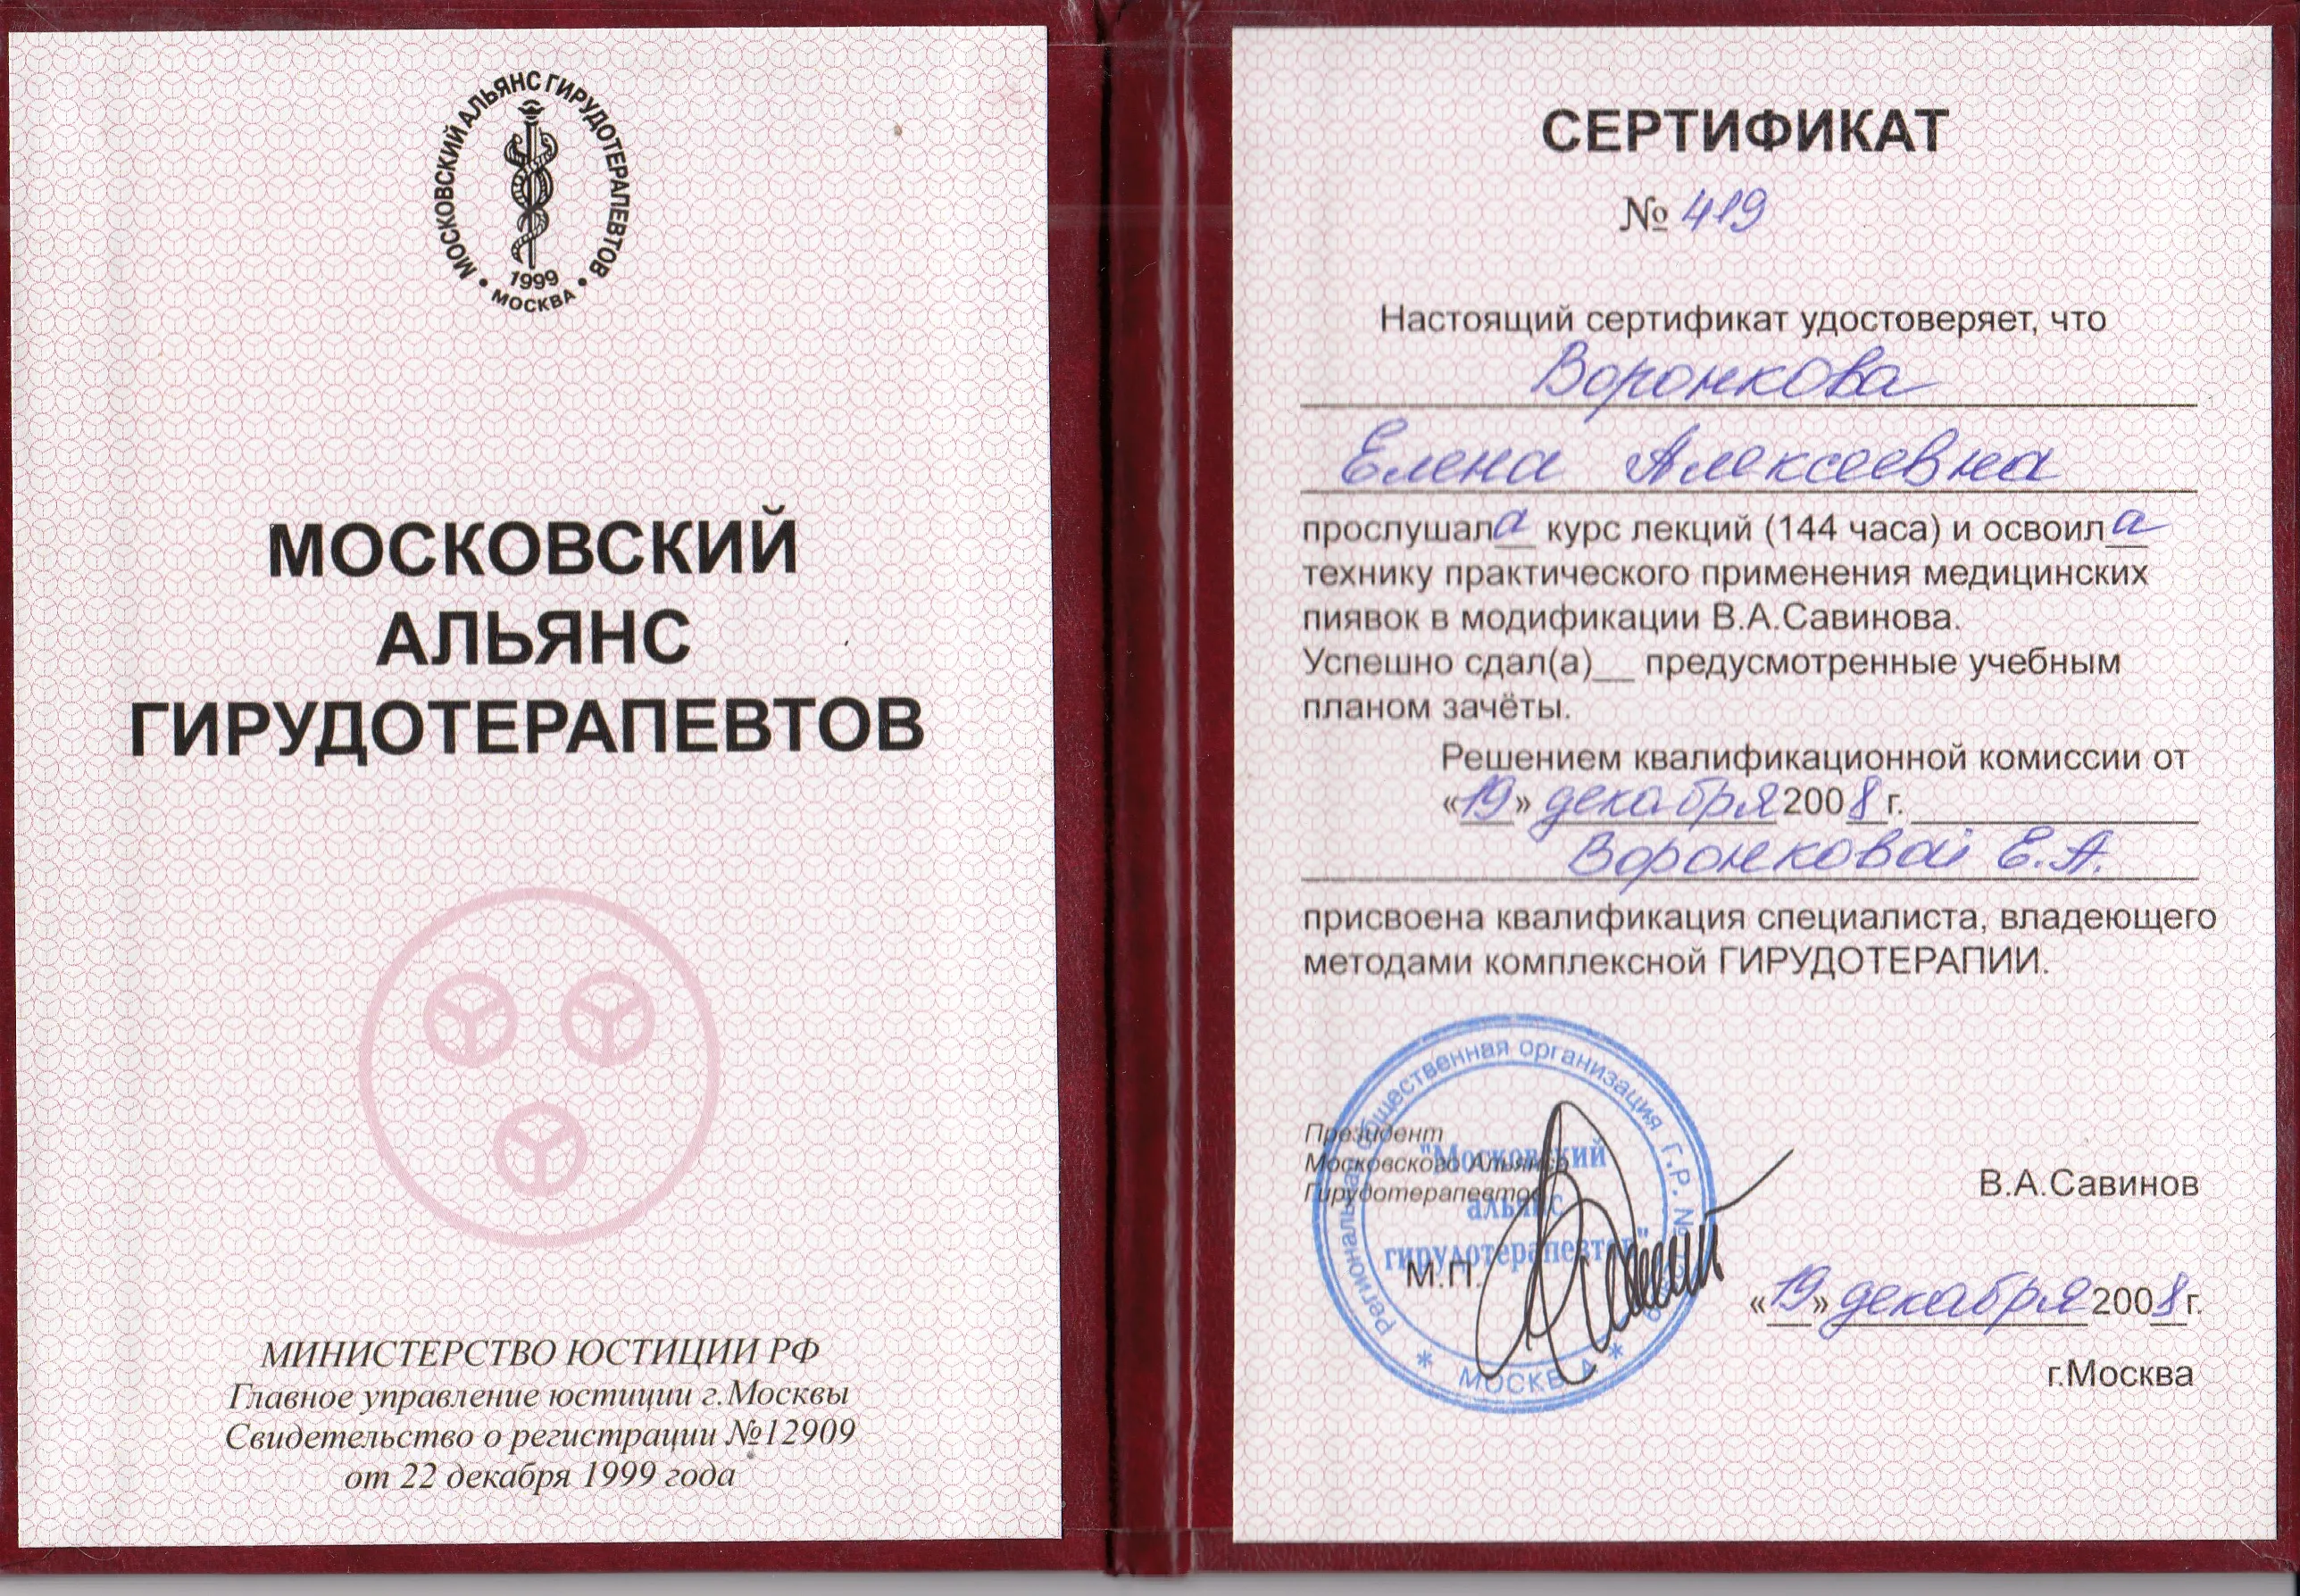 МОСКОВСКИЙ АЛЬЯНС ГИРУДОТЕРАПЕВТОВ
1999
МОСКВА
МОСКОВСКИЙ
АЛЬЯНС
ГИРУДОТЕРАПЕВТОВ
МИНИСТЕРСТВО ЮСТИЦИИ РФ
Главное управление юстиции г.Москвы
Свидетельство о регистрации №12909
от 22 декабря 1999 года
СЕРТИФИКАТ
№ 419
Настоящий сертификат удостоверяет, что
Воронкова
Елена Алексеевна
прослушала курс лекций (144 часа) и освоила
технику практического применения медицинских
пиявок в модификации В.А.Савинова.
Успешно сдал(а)__ предусмотренные учебным
планом зачёты.
Решением квалификационной комиссии от
«19» декабря 2008 г.
Воронковой Е.А.
присвоена квалификация специалиста, владеющего
методами комплексной ГИРУДОТЕРАПИИ.
Президент
Московского Альянса
Гирудотерапевтов
В.А.Савинов
М.П.
Региональная общественная организация Г.Р. №
"Московский
альянс
гирудотерапевтов"
* МОСКВА *
«19» декабря 2008 г.
г.Москва